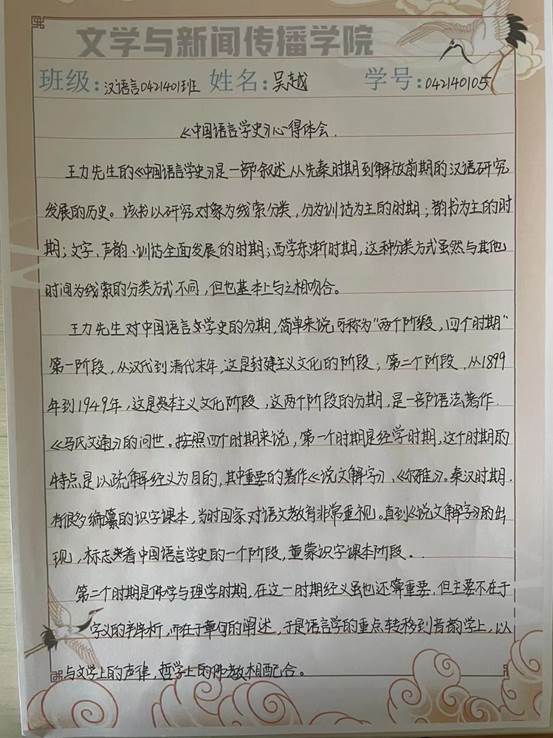 文学与新闻传播学院
班级:汉语言0421401班 姓名:吴越 学号:042140105
《中国语言学史》心得体会.
王力先生的《中国语言学史》是一部叙述从先秦时期到解放前期的汉语研究
发展的历史。该书以研究对象为线索分类,分为训诂为主的时期;韵书为主的时
期;文字、声韵、训诂全面发展的时期;西学东渐时期,这种分类方式虽然与其他
时间为线索的分类方式不同,但也基本上与之相吻合。
王力先生对中国语言学史的分期,简单来说,可称为“两个阶段,四个时期”
第一阶段,从汉代到清代末年,这是封建主义文化的阶段;第二个阶段,从1899
年到1949年,这是资本主义文化阶段,这两个阶段的分期,是一部语法著作
《马氏文通》的问世。按照四个时期来说,第一个时期是经学时期,这个时期的
特点是以疏解经义为目的,其中重要的著作《说文解字》、《尔雅》。秦汉时期,
有很多编纂的识字课本,当时国家对语文教育非常重视。直到《说文解字》的出
现,标志着中国语言学史的一个阶段,童蒙识字课本阶段..
第二个时期是佛学与理学时期,在这一时期经义虽也还算重要,但主要不在于
字义的辨析,而在于章句的阐述,于是语言学的重点转移到音韵学上,以
与文学上的声律,哲学上的佛教相配合。